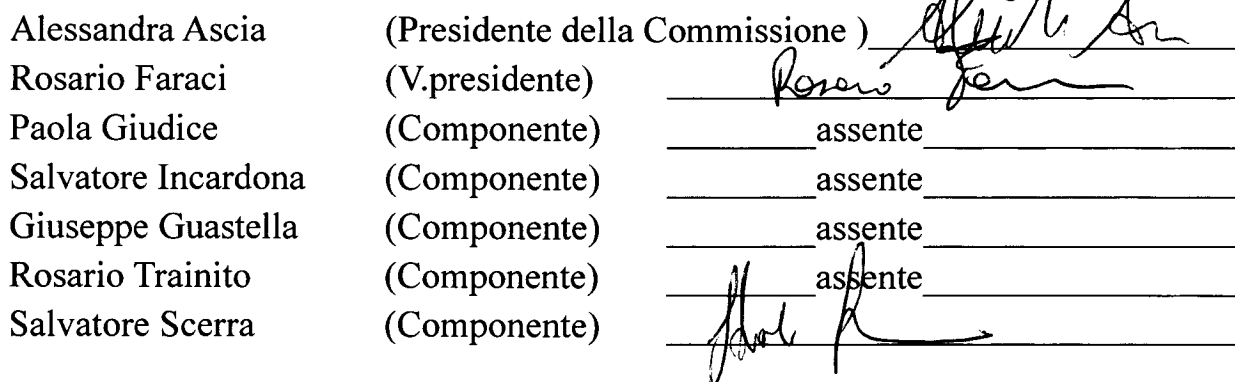 Alessandra Ascia (Presidente della Commissione )
Rosario Faraci (V.presidente) Rosario
Paola Giudice (Componente) assente
Salvatore Incardona (Componente) assente
Giuseppe Guastella (Componente) assente
Rosario Trainito (Componente) assente
Salvatore Scerra (Componente)